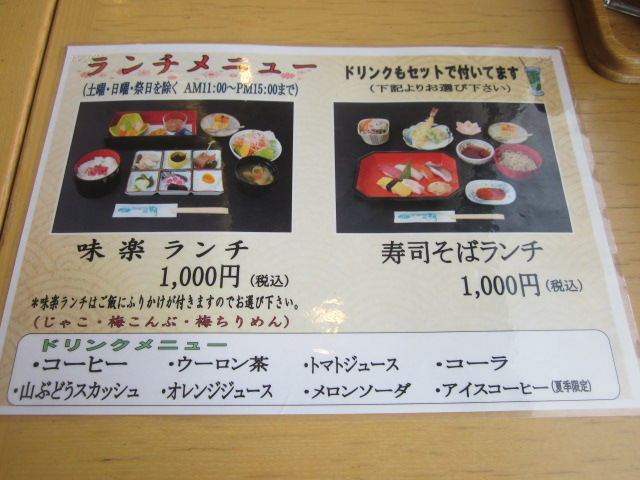 ランチメニュー
(土曜・日曜・祭日を除く AM11:00〜PM15:00まで)
ドリンクもセットで付いてます
(下記よりお選び下さい)
味楽ランチ
1,000円(税込)
*味楽ランチはご飯にふりかけが付きますのでお選び下さい。
(じゃこ・梅こんぶ・梅ちりめん)
寿司そばランチ
1,000円(税込)
ドリンクメニュー
・コーヒー ・ウーロン茶 ・トマトジュース ・コーラ
・山ぶどうスカッシュ ・オレンジジュース ・メロンソーダ ・アイスコーヒー(夏季限定)